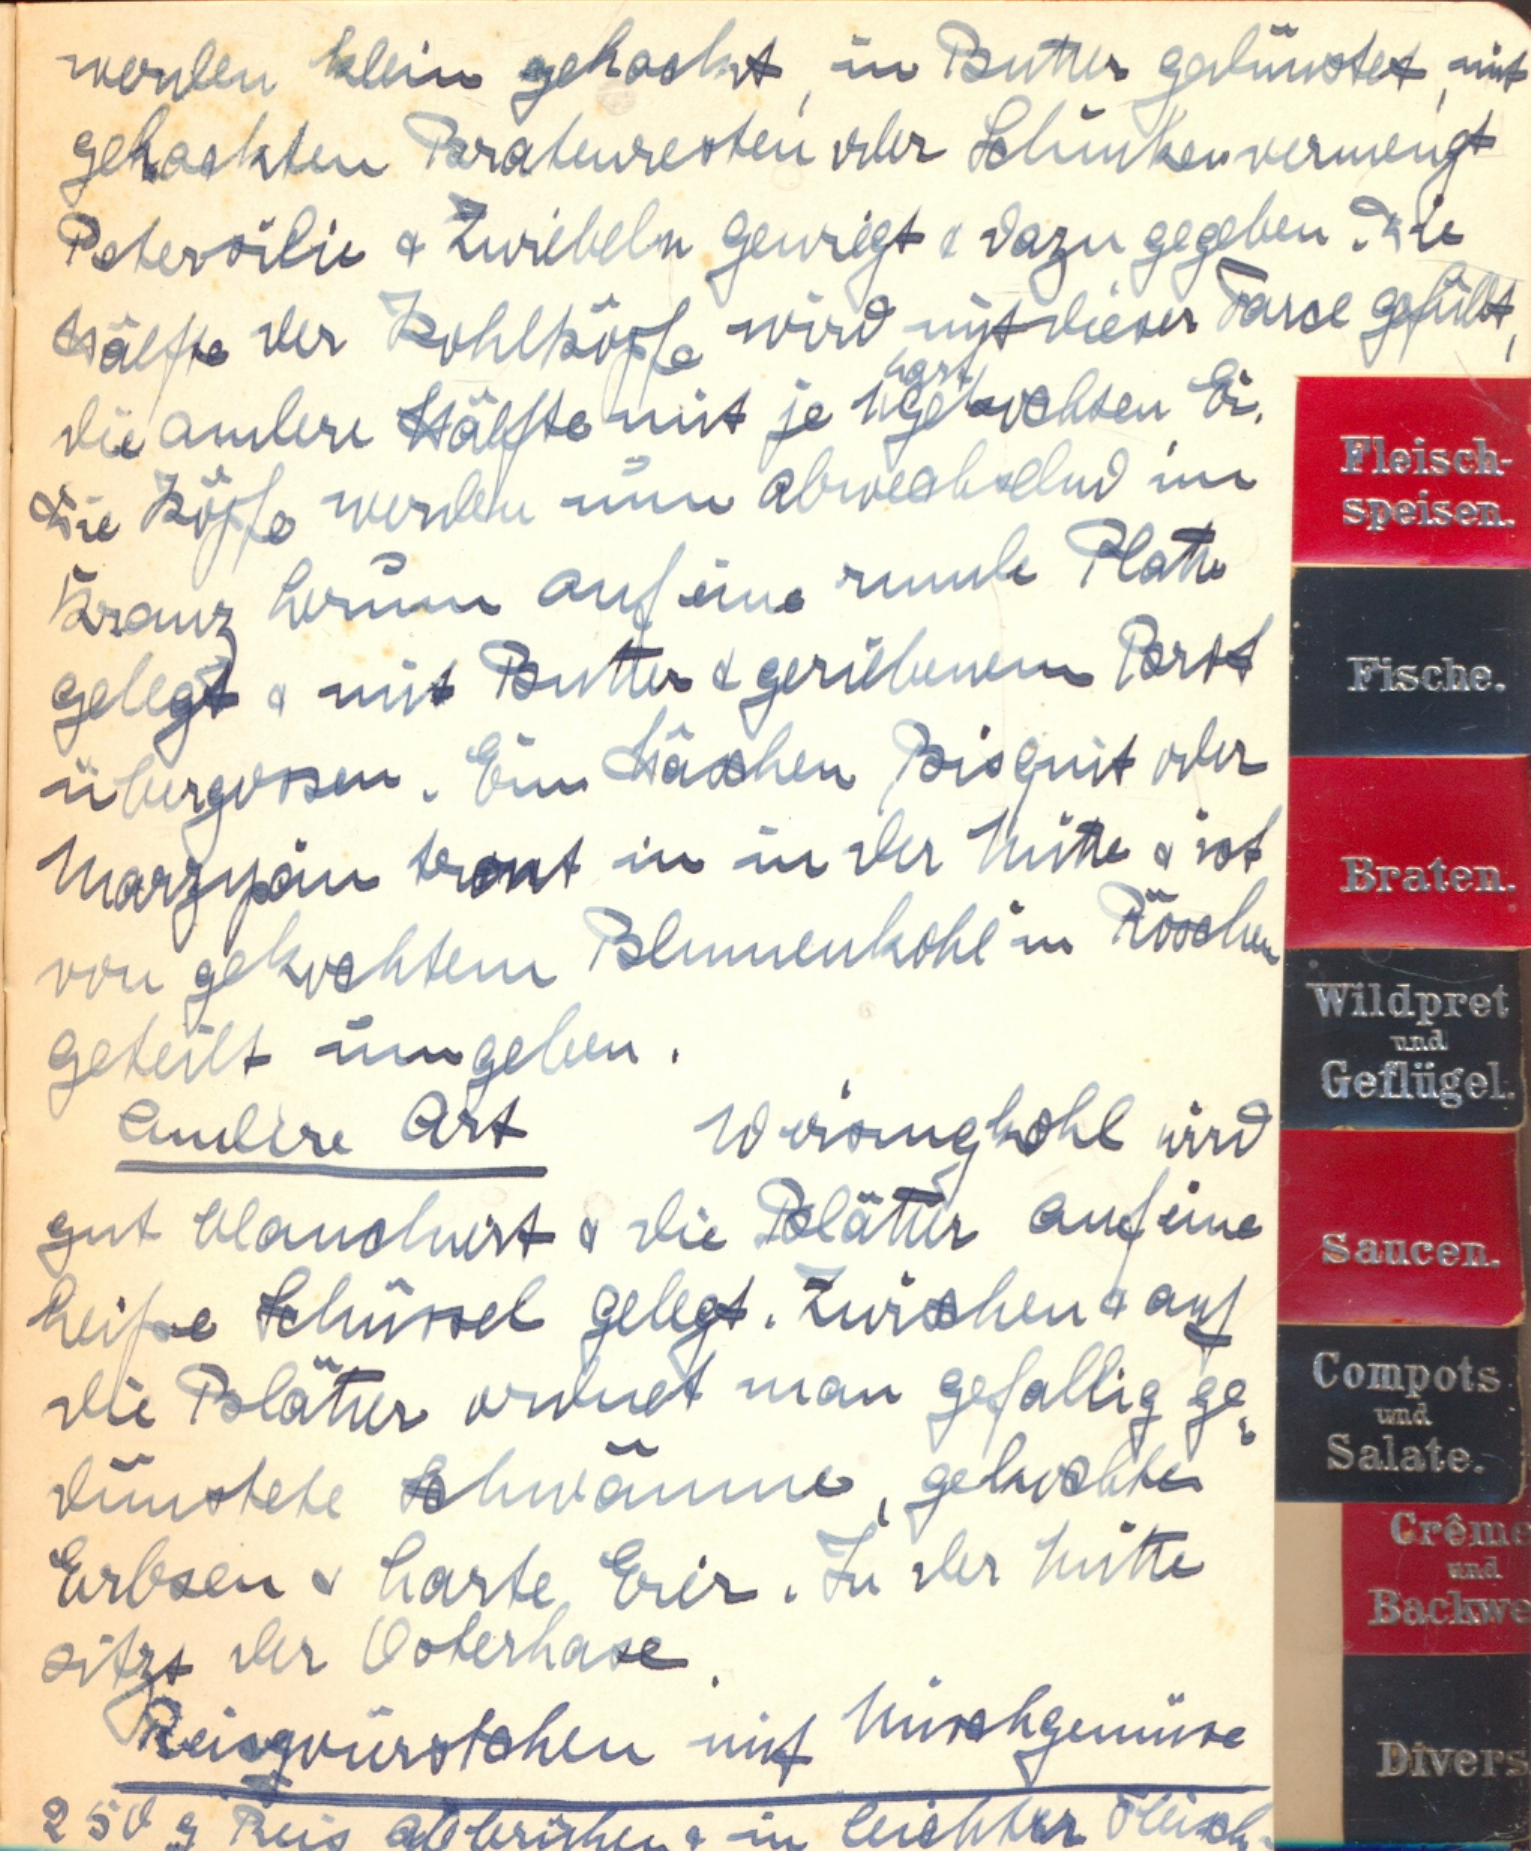 werden klein gehackt, in Butter gedünstet, mit
gehackten Bratenresten oder Schinken vermengt
Petersilie & Zwiebeln gewiegt & dazu gegeben. Die
Hälfte der Kohlköpfe wird mit dieser Farce gefüllt,
hart
die andere Hälfte mit je 1 gekochten Ei.
Die Köpfe werden nun abwechselnd im
Kranz herum auf eine runde Platte
gelegt & mit Butter & geriebenem Brot
übergossen. Ein Häschen Bisquit oder
Marzipan tront in in der Mitte & ist
von gekochtem Blumenkohl in Röschen
geteilt umgeben.
Andere Art Wirsingkohl wird
gut blanchiert & die Blätter auf eine
heiße Schüssel gelegt. Zwischen & auf
die Blätter ordnet man gefallig ge-
dünstete Schwämme, gekochte
Erbsen & harte Eier. In der Mitte
sitzt der Osterhase.
Reiswürstchen mit Mischgemüse
250 g Reis abbrühen & in leichter Fleisch-
Fleisch-
speisen.
Fische.
Braten.
Wildpret
und
Geflügel.
Saucen.
Compots
und
Salate.
Crême
und
Backwe
Divers